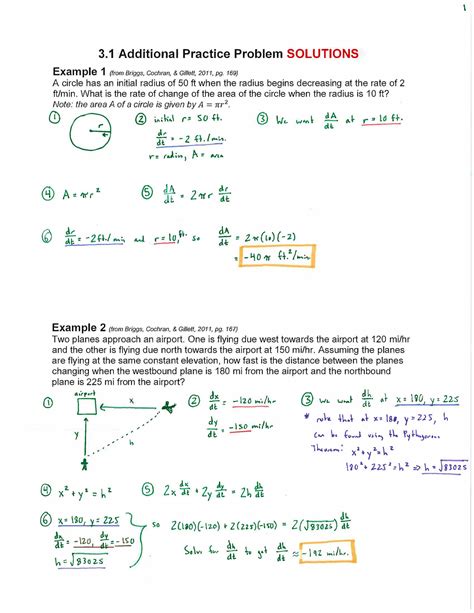 1
3.1 Additional Practice Problem SOLUTIONS
Example 1 (from Briggs, Cochran, & Gillett, 2011, pg. 169)
A circle has an initial radius of 50 ft when the radius begins decreasing at the rate of 2
ft/min. What is the rate of change of the area of the circle when the radius is 10 ft?
Note: the area A of a circle is given by A = πr².
① r ② initial r = 50 ft. ③ We want dA/dt at r = 10 ft.
dr/dt = -2 ft./min
r = radius, A = area
④ A = πr² ⑤ dA/dt = 2πr dr/dt
⑥ dr/dt = -2 ft/min and r = 10 ft, so dA/dt = 2π(10)(-2)
= -40π ft.²/min
Example 2 (from Briggs, Cochran, & Gillett, 2011, pg. 167)
Two planes approach an airport. One is flying due west towards the airport at 120 mi/hr
and the other is flying due north towards the airport at 150 mi/hr. Assuming the planes
are flying at the same constant elevation, how fast is the distance between the planes
changing when the westbound plane is 180 mi from the airport and the northbound
plane is 225 mi from the airport?
① airport x y h
② dx/dt = -120 mi/hr
dy/dt = -150 mi/hr
③ We want dh/dt at x = 180, y = 225
* note that at x = 180, y = 225, h
can be found using the Pythagorean
Theorem: x² + y² = h²
180² + 225² = h² ⇒ h = √83025
④ x² + y² = h² ⑤ 2x dx/dt + 2y dy/dt = 2h dh/dt
⑥ x = 180, y = 225
dx/dt = -120, dy/dt = -150
h = √83025
so 2(180)(-120) + 2(225)(-150) = 2(√83025) dh/dt
Solve for dh/dt to get dh/dt ≈ -192 mi/hr.